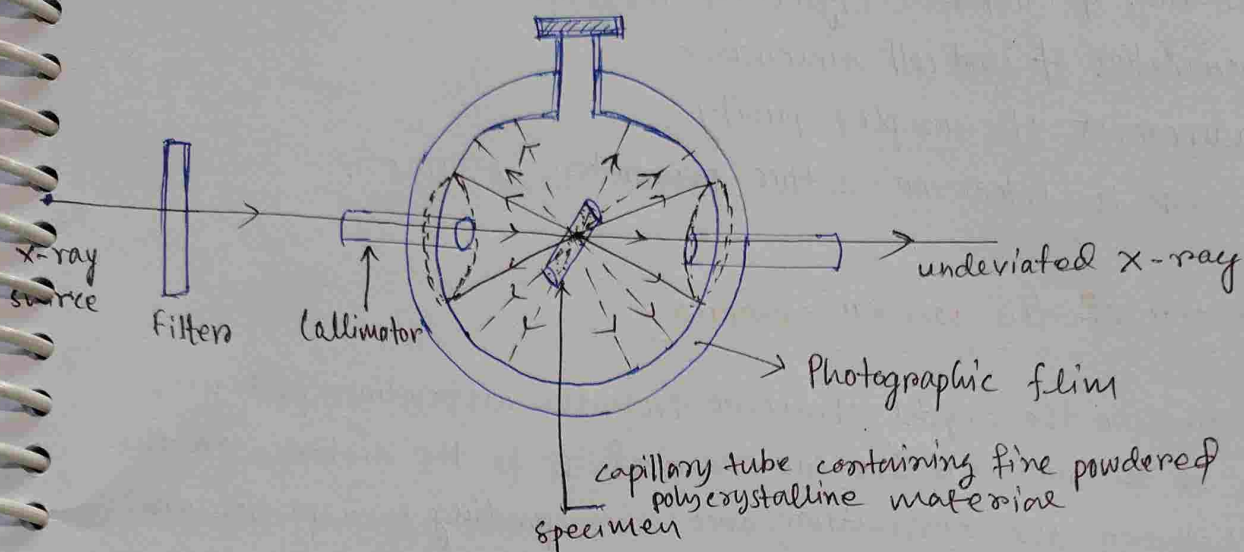 x-ray
source
Filter
Callimator
undeviated x-ray
Photographic flim
capillary tube containing fine powdered
polycrystalline material
specimen